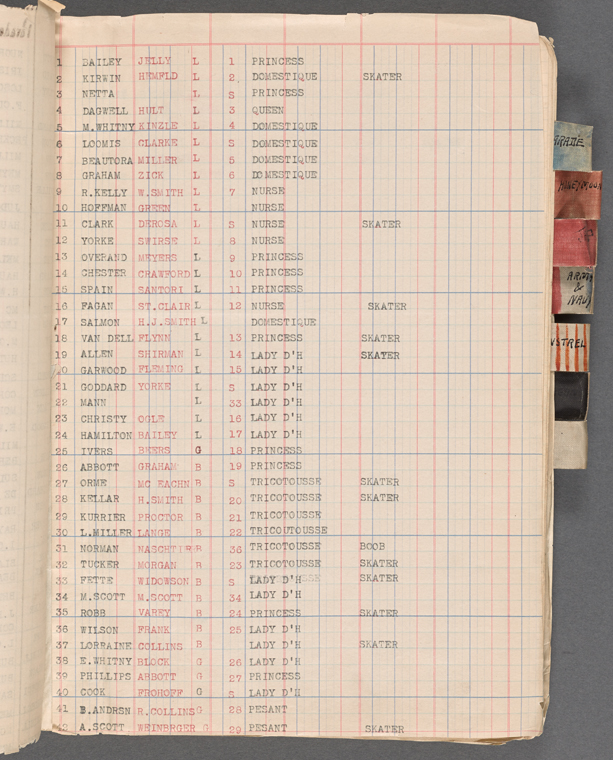 1 BAILEY JELLY L 1 PRINCESS
2 KIRWIN HEMFLD L 2. DOMESTIQUE SKATER
3 NETTA L S PRINCESS
4 DAGWELL HULT L 3 QUEEN
5 M.WHITNY KINZLE L 4 DOMESTIQUE
6 LOOMIS CLARKE L S DOMESTIQUE
7 BEAUTORA MILLER L 5 DOMESTIQUE
8 GRAHAM ZICK L 6 DOMESTIQUE
9 R.KELLY W.SMITH L 7 NURSE
10 HOFFMAN GREEN L NURSE
11 CLARK DEROSA L S NURSE SKATER
12 YORKE SWIRSE L 8 NURSE
13 OVERAND MEYERS L 9 PRINCESS
14 CHESTER CRAWFORD L 10 PRINCESS
15 SPAIN SANTORI L 11 PRINCESS
16 FAGAN ST.CLAIR L 12 NURSE SKATER
17 SALMON H.J.SMITH L DOMESTIQUE
18 VAN DELL FLYNN L 13 PRINCESS SKATER
19 ALLEN SHIRMAN L 14 LADY D'H SKATER
20 GARWOOD FLEMING L 15 LADY D'H
21 GODDARD YORKE L S LADY D'H
22 MANN L 33 LADY D'H
23 CHRISTY OGLE L 16 LADY D'H
24 HAMILTON BAILEY L 17 LADY D'H
25 IVERS BEERS G 18 PRINCESS
26 ABBOTT GRAHAM B 19 PRINCESS
27 ORME MC EACHN B S TRICOTOUSSE SKATER
28 KELLAR H.SMITH B 20 TRICOTOUSSE SKATER
29 KURRIER PROCTOR B 21 TRICOTOUSSE
30 L.MILLER LANGE B 22 TRICOUTOUSSE
31 NORMAN B 36 TRICOTOUSSE BOOB
32 TUCKER MORGAN B 23 TRICOTOUSSE SKATER
33 FETTE WIDOWSON B S LADY D'H SKATER
34 M.SCOTT M.SCOTT B 34 LADY D'H
35 ROBB VAREY B 24 PRINCESS SKATER
36 WILSON FRANK B 25 LADY D'H
37 LORRAINE COLLINS B LADY D'H SKATER
38 E.WHITNY BLOCK G 26 LADY D'H
39 PHILLIPS ABBOTT G 27 PRINCESS
40 COCK FROHOFF G S LADY D'H
41 B.ANDRSN R.COLLINS G 28 PESANT
42 A.SCOTT WEINBRGER G 29 PESANT SKATER
ARADE
HONEYMOON
ARMY
&
NAVY
NSTREL